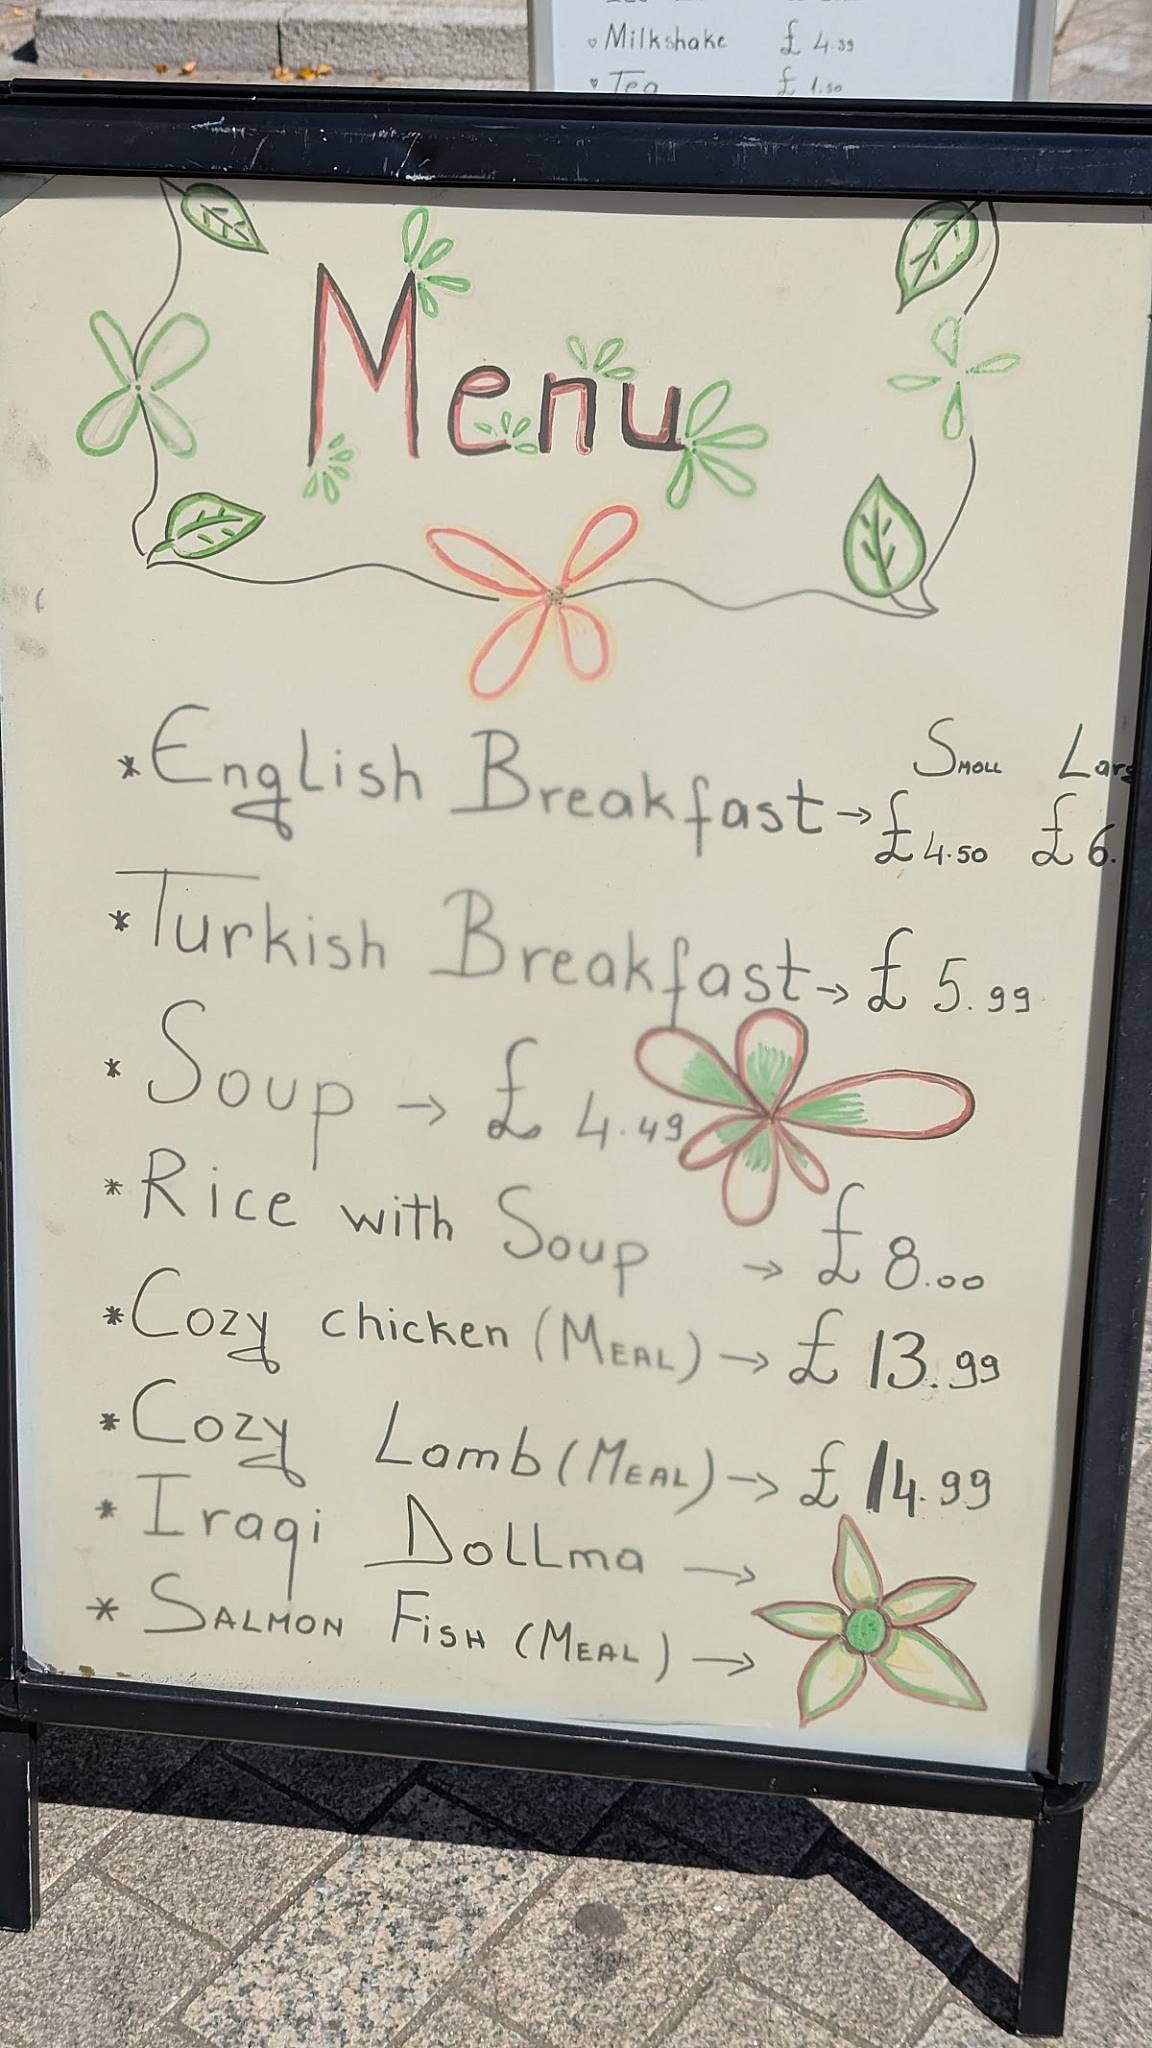 Milkshake £ 4.99
Tea £ 1.50
Menu
Smoll
* English Breakfast → £4.50 £6.
* Turkish Breakfast → £ 5.99
* Soup → £ 4.49
* Rice with Soup → £ 8.00
* Cozy chicken (MEAL) → £ 13.99
* Cozy Lamb (MEAL) → £ 14.99
* Iraqi DoLLma →
* SALMON FisH (MEAL) →